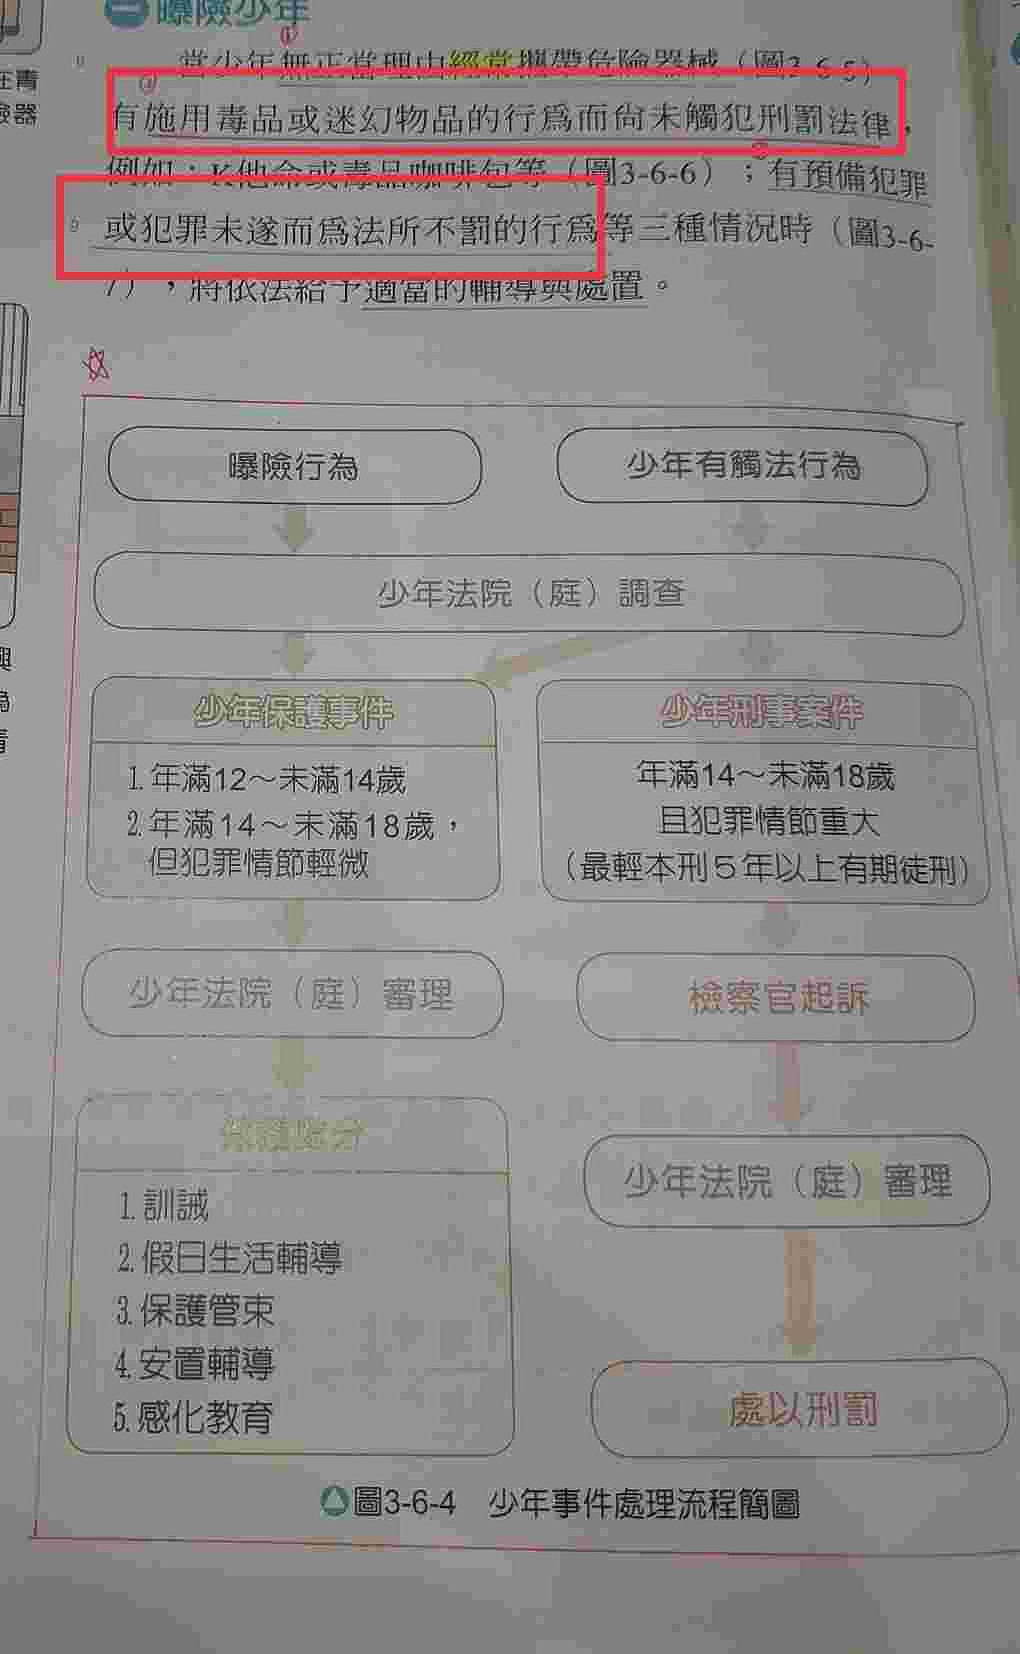 曝險少年
①
在青
險器
當少年無正當理由經常攜帶危險器械（圖3-6-5）
有施用毒品或迷幻物品的行為而尚未觸犯刑罰法律，
例如：K他命或毒品咖啡包等（圖3-6-6）；有預備犯罪
或犯罪未遂而為法所不罰的行為等三種情況時（圖3-6-
7），將依法給予適當的輔導與處置。
曝險行為
少年有觸法行為
少年法院（庭）調查
少年保護事件
1.年滿12～未滿14歲
2.年滿14～未滿18歲，
但犯罪情節輕微
少年刑事案件
年滿14～未滿18歲
且犯罪情節重大
（最輕本刑5年以上有期徒刑）
少年法院（庭）審理
檢察官起訴
保護處分
1.訓誡
2.假日生活輔導
3.保護管束
4.安置輔導
5.感化教育
少年法院（庭）審理
處以刑罰
圖3-6-4 少年事件處理流程簡圖